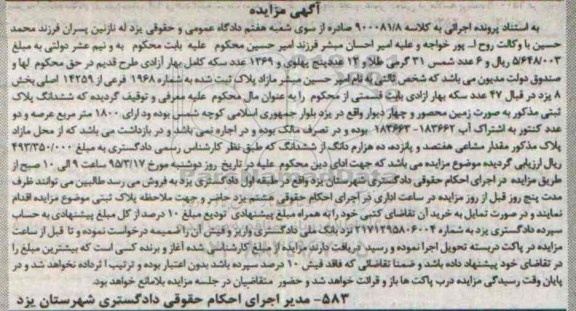 آگهی مزایده
به استناد پرونده اجرائی به کلاسه ۹۰۰۰۸۱/۸ صادره از سوی شعبه هفتم دادگاه عمومی و حقوقی یزد له نازنین پسران فرزند محمد
حسین با وکالت روح ا... پور خواجه و علیه امیر احسان مبشر فرزند امیر حسین محکوم علیه بابت محکوم به و نیم عشر دولتی به مبلغ
۵/۶۴۸/۰۰۳ ریال و ۶ عدد شمس ۳۱ گرمی طلا و ۱۴ عددپنج پهلوی و ۱۳۶۹ عدد سکه کامل بهار آزادی طرح قدیم در حق محکوم لها و
صندوق دولت مدیون می باشد که شخص ثالثی به نام امیر حسین مبشر مازاد پلاک ثبت شده به شماره ۱۹۶۸ فرعی از ۱۴۲۵۹ اصلی بخش
۸ یزد در قبال ۴۷ عدد سکه بهار ازادی بابت قسمتی از محکوم را به عنوان مال محکوم علیه معرفی و توقیف گردیده که ششدانگ پلاک
ثبتی مذکور به صورت زمین محصور و چهار دیوار واقع در یزد بلوار جمهوری اسلامی کوچه شمس بوده ودارای ۱۸۰۰ متر مربع عرصه و دو
عدد کنتور به اشتراک آب ۱۸۳۶۶۲- ۱۸۳۶۶۳ بوده و در تصرف مالک بوده و در اجاره نمی باشد و در بازداشت می باشد که از محل مازاد
پلاک مذکور مقدار مشاعی هفتصد و پانزده ده هزارم دانگ از ششدانگ که طبق نظر کارشناس رسمی دادگستری به مبلغ ۴۹۳/۳۵۰/۰۰۰
ریال ارزیابی گردیده موضوع مزایده می باشد که جهت ادای دین محکوم علیه در تاریخ روز دوشنبه مورخ ۹۵/۳/۱۷ ساعت ۹ الی ۱۰ صبح از
طریق مزایده در اجرای احکام حقوقی دادگستری شهرستان یزد واقع در طبقه اول دادگستری یزد به فروش می رسد طالبین می توانند ظرف
مدت پنج روز قبل از روز مزایده در ساعت اداری در اجرای احکام حقوقی هشتم یزد حاضر و جهت ملاحظه پلاک ثبتی موضوع مزایده اقدام
نمایند و در صورت تمایل به خرید آن تقاضای کتبی خود را به همراه مبلغ پیشنهادی تودیع مبلغ ۱۰ درصد از کل مبلغ پیشنهادی به حساب
سپرده دادگستری یزد به شماره ۲۱۷۱۲۹۵۸۰۶۰۰۴ نزد بانک ملی دادگستری واریز و فیش آن را ضمیمه درخواست نموده و تا قبل از ساعت
مزایده در پاکت دربسته تحویل اجرا نموده و رسید دریافت دارند مزایده از مبلغ کارشناسی شده آغاز و برنده کسی است که بیشترین مبلغ را
در تقاضای خود پیشنهاد داده باشد و ضمنا تقاضائی که فاقد فیش ۱۰ درصد سپرده باشد بدون اعتبار بوده و ترتیب اثر داده نخواهد شد و در
پایان وقت رسیدگی مزایده درب پاکت ها باز و قرائت خواهد شد و حضور متقاضیان در جلسه مزایده بلامانع خواهد بود.
۵۸۳- مدیر اجرای احکام حقوقی دادگستری شهرستان یزد